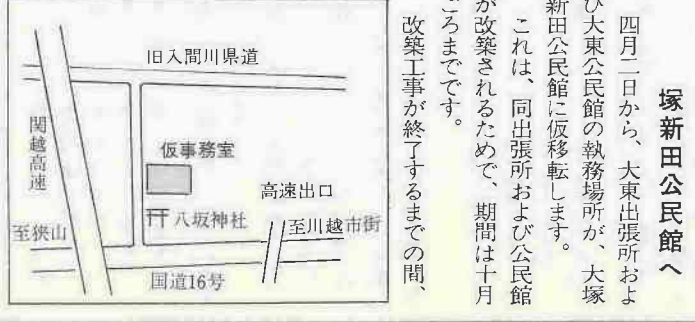 塚新田公民館へ
四月二日から、大東出張所およ
び大東公民館の執務場所が、大塚
新田公民館に仮移転します。
これは、同出張所および公民館
が改築されるためで、期間は十月
ごろまでです。
改築工事が終了するまでの間、
旧入間川県道
関越高速
仮事務室
高速出口
八坂神社
至狭山
至川越市街
国道16号